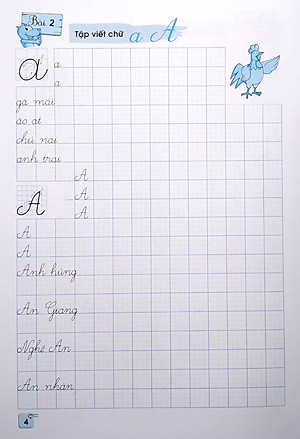 Bài 2
Tập viết chữ a A
a a
a
gà mái
áo at
chú nai
anh trai
A
A A
A
A
A
Anh hùng
An Giang
Nghệ An
An nhàn
4